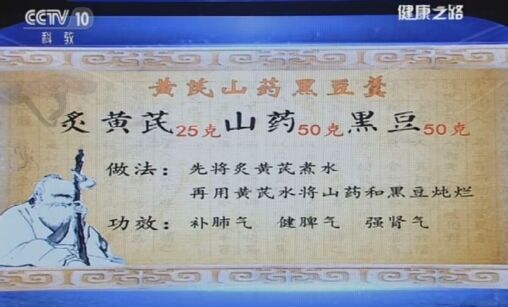 CCTV 10
科教
健康之路
黄芪山药黑豆羹
炙黄芪25克山药50克黑豆50克
做法：先将炙黄芪煮水
再用黄芪水将山药和黑豆炖烂
功效：补肺气 健脾气 强肾气